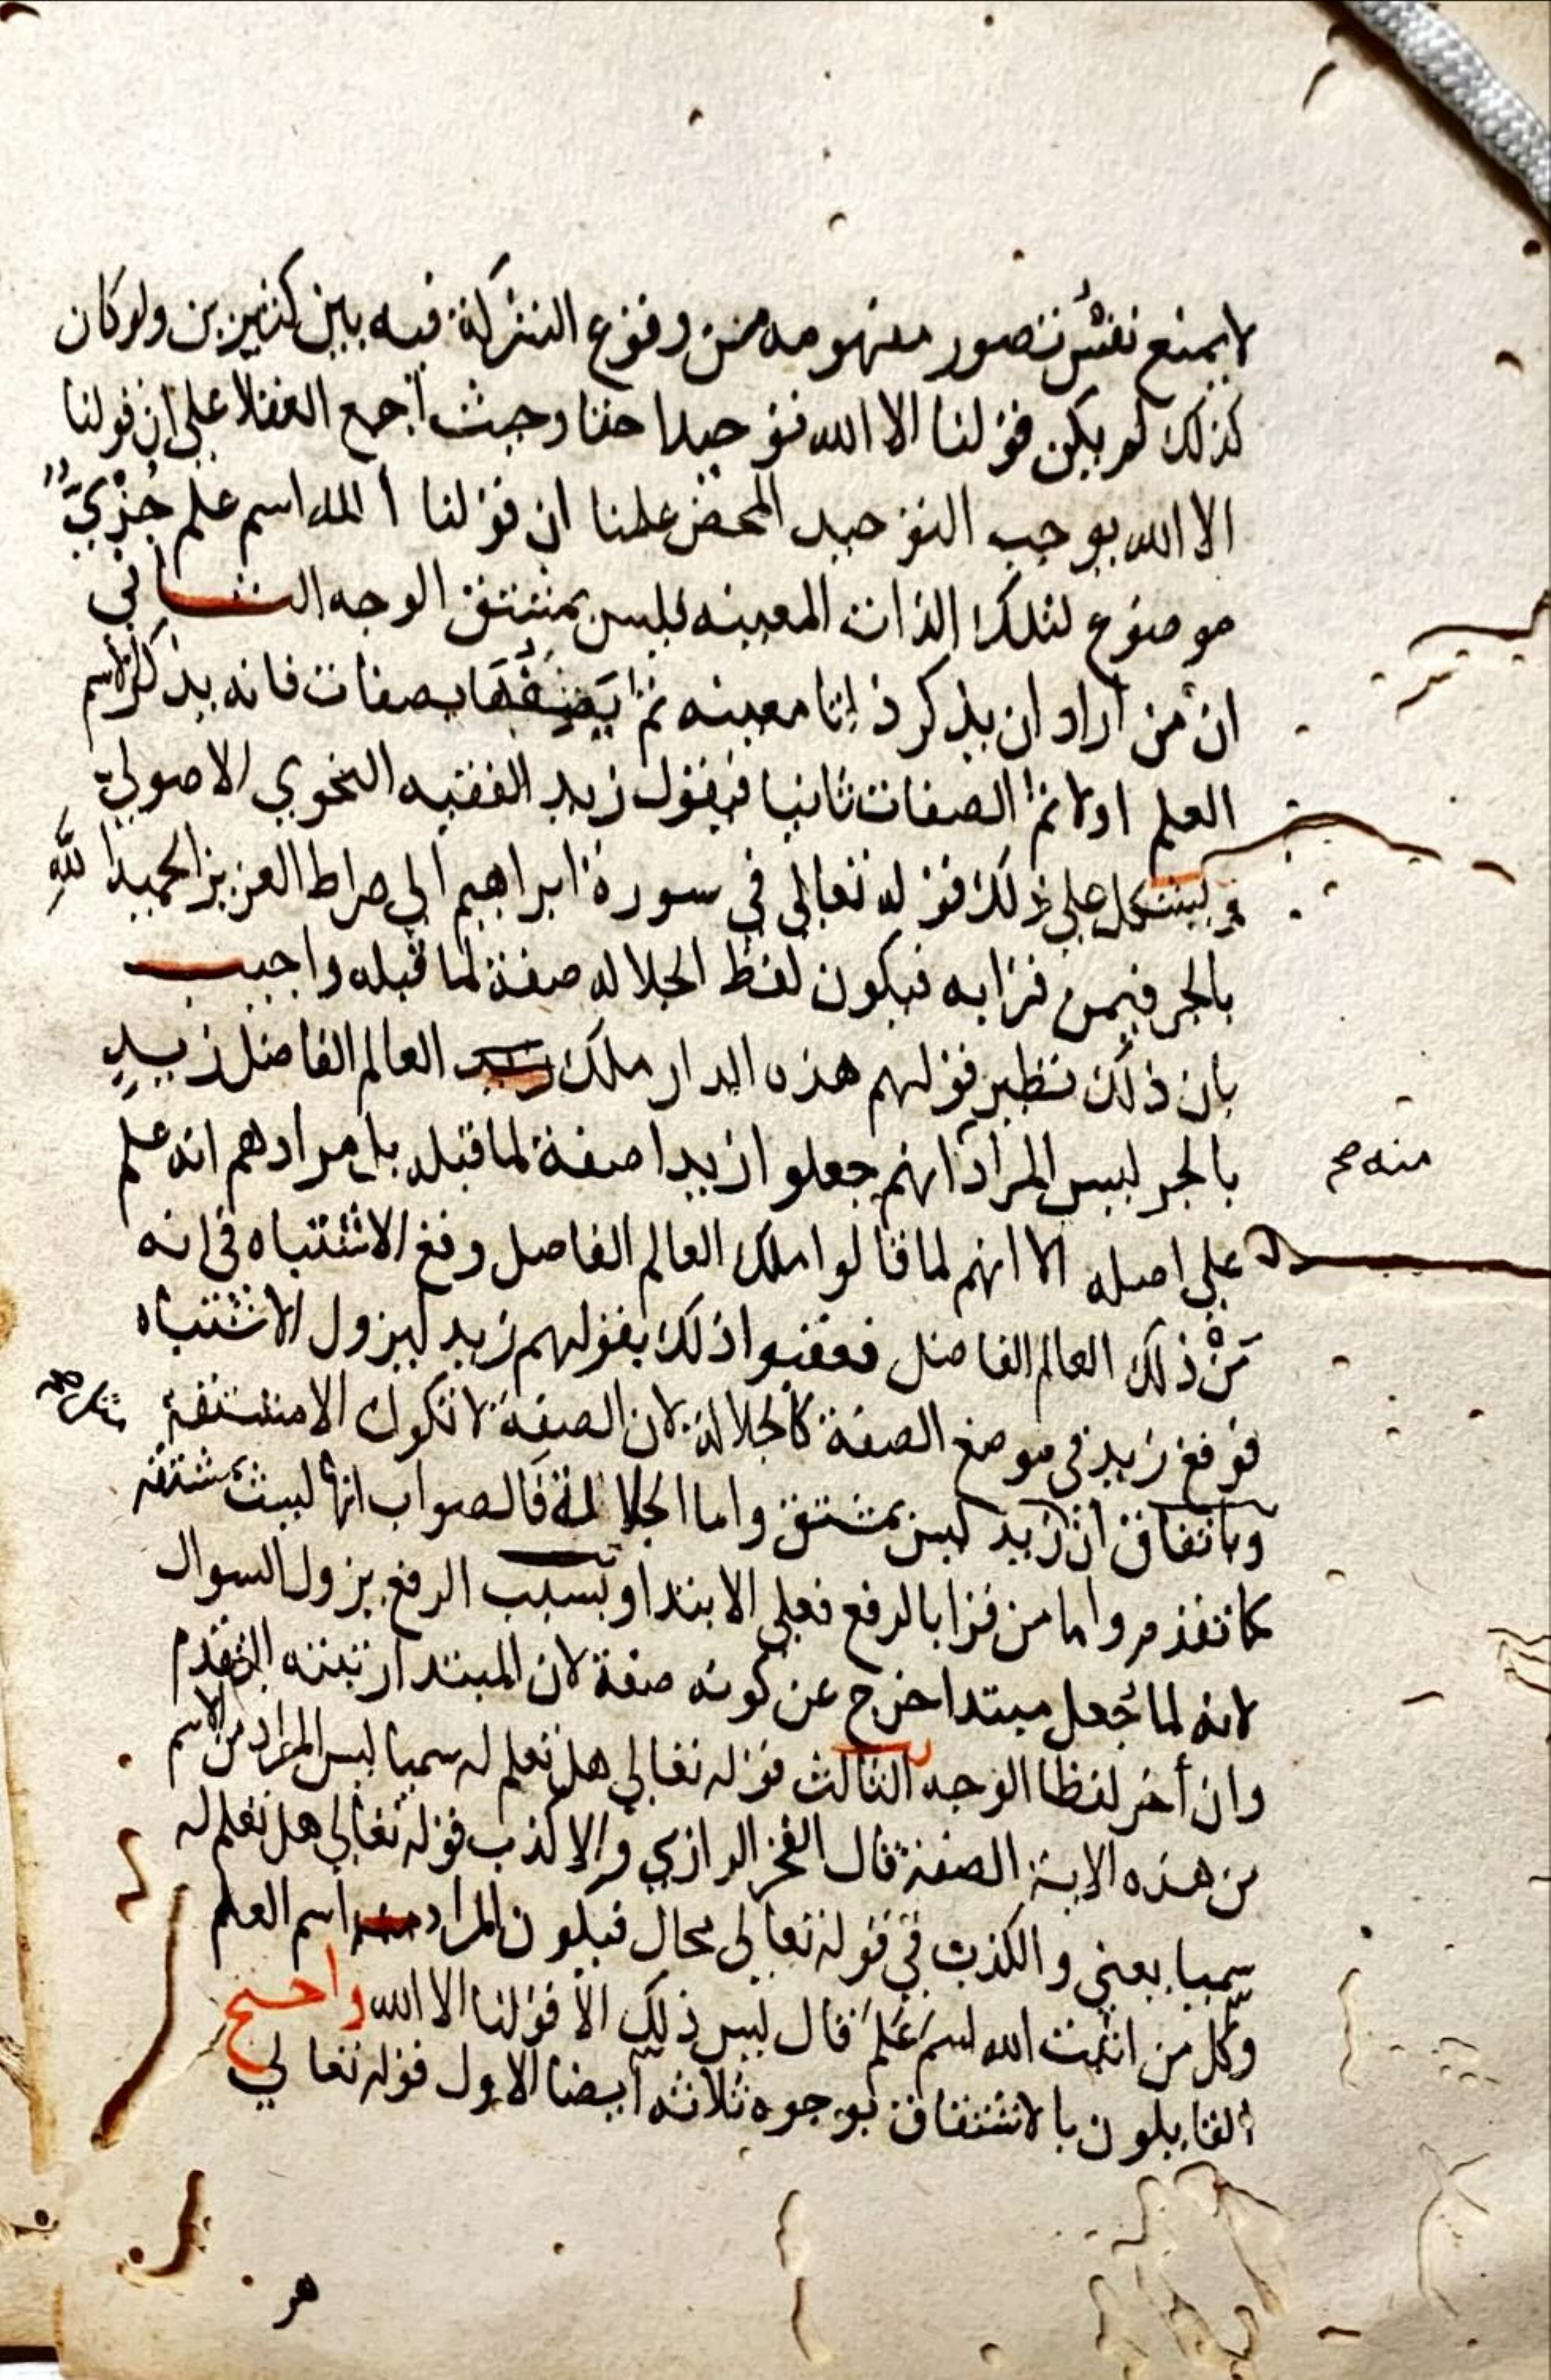 لا يمنع نفس تصور مفهومه من وقوع الشركة فيه بين كثيرين ولو كان
كذلك لم يكن قولنا الا الله توحيدا حقا وحيث أجمع العقلا على ان قولنا
الا الله يوجب التوحيد المحض علمنا ان قولنا الله اسم علم جُزْيّ
موضوع لتلك الذات المعينه فليس بمشتق الوجه الثاني
ان من أراد ان يذكر ذاتا معينه ثم يصفها بصفات فانه يذكر الاسم
العلم اولا ثم الصفات ثانيا فيقول زيد الفقيه النحوي الاصولي
ويشكل على ذلك قوله تعالى في سورة ابراهيم الي صراط العزيز الحميد الله
بالجر فيمن قرا به فيكون لفظ الجلاله صفة لما قبله واجيب
بان ذلك نظير قولهم هذه الدار ملك العالم الفاضل زيدٍ
بالجر ليس المراد انهم جعلوا زيدا صفة لما قبله بل مرادهم انه علم
منه صح
على اصله الا انهم لما قالوا ملك العالم الفاضل وقع الاشتباه في انه
مَنْ ذلك العالم الفاضل فعقبوا ذلك بقولهم زيد ليزول الاشتباه
فوقع زيد في موضع الصفة كالجلالة لان الصفة لا تكون الا مشتقة
وباتفاق ان زيد ليس بمشتق واما الجلالة فالصواب انها ليست بمشتقه
كما تقدم واما من قرا بالرفع فعلى الابتدا وبسبب الرفع يزول السوال
لانه لما جُعل مبتدا خرج عن كونه صفة لان المبتدا رتبته التقدم
وان أخر لفظا الوجه الثالث قوله تعالي هل تعلم له سميا ليس المراد من الاسم
من هذه الاية الصفة قال الفخر الرازي والا لكذب قوله تعالي هل تعلم له
سميا يعني والكذب في قوله تعالى محال فيكون المراد اسم العلم
وكل من اثبت الله اسم عَلَمَ قال ليس ذلك الا قولنا الا الله واحتج
القايلون بالاشتقاق بوجوه ثلاثه أيضا الاول قوله تعالي